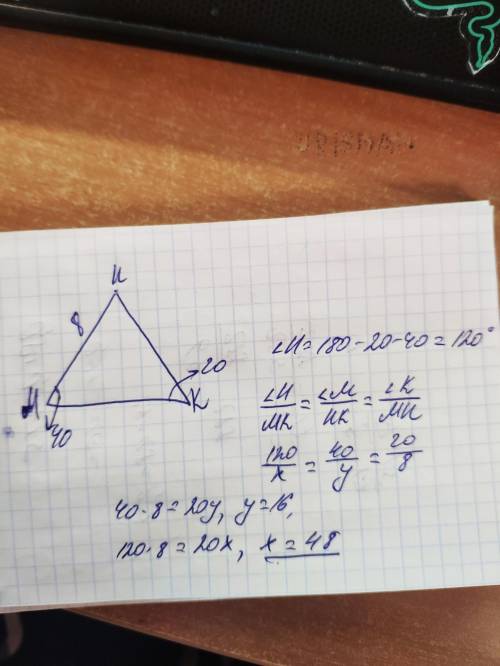 И
8
20
М
К
40
∠И=180-20-40=120°
∠И/МК=∠М/ИК=∠К/МИ
120/x=40/y=20/8
40·8=20y, y=16,
120·8=20x, x=48